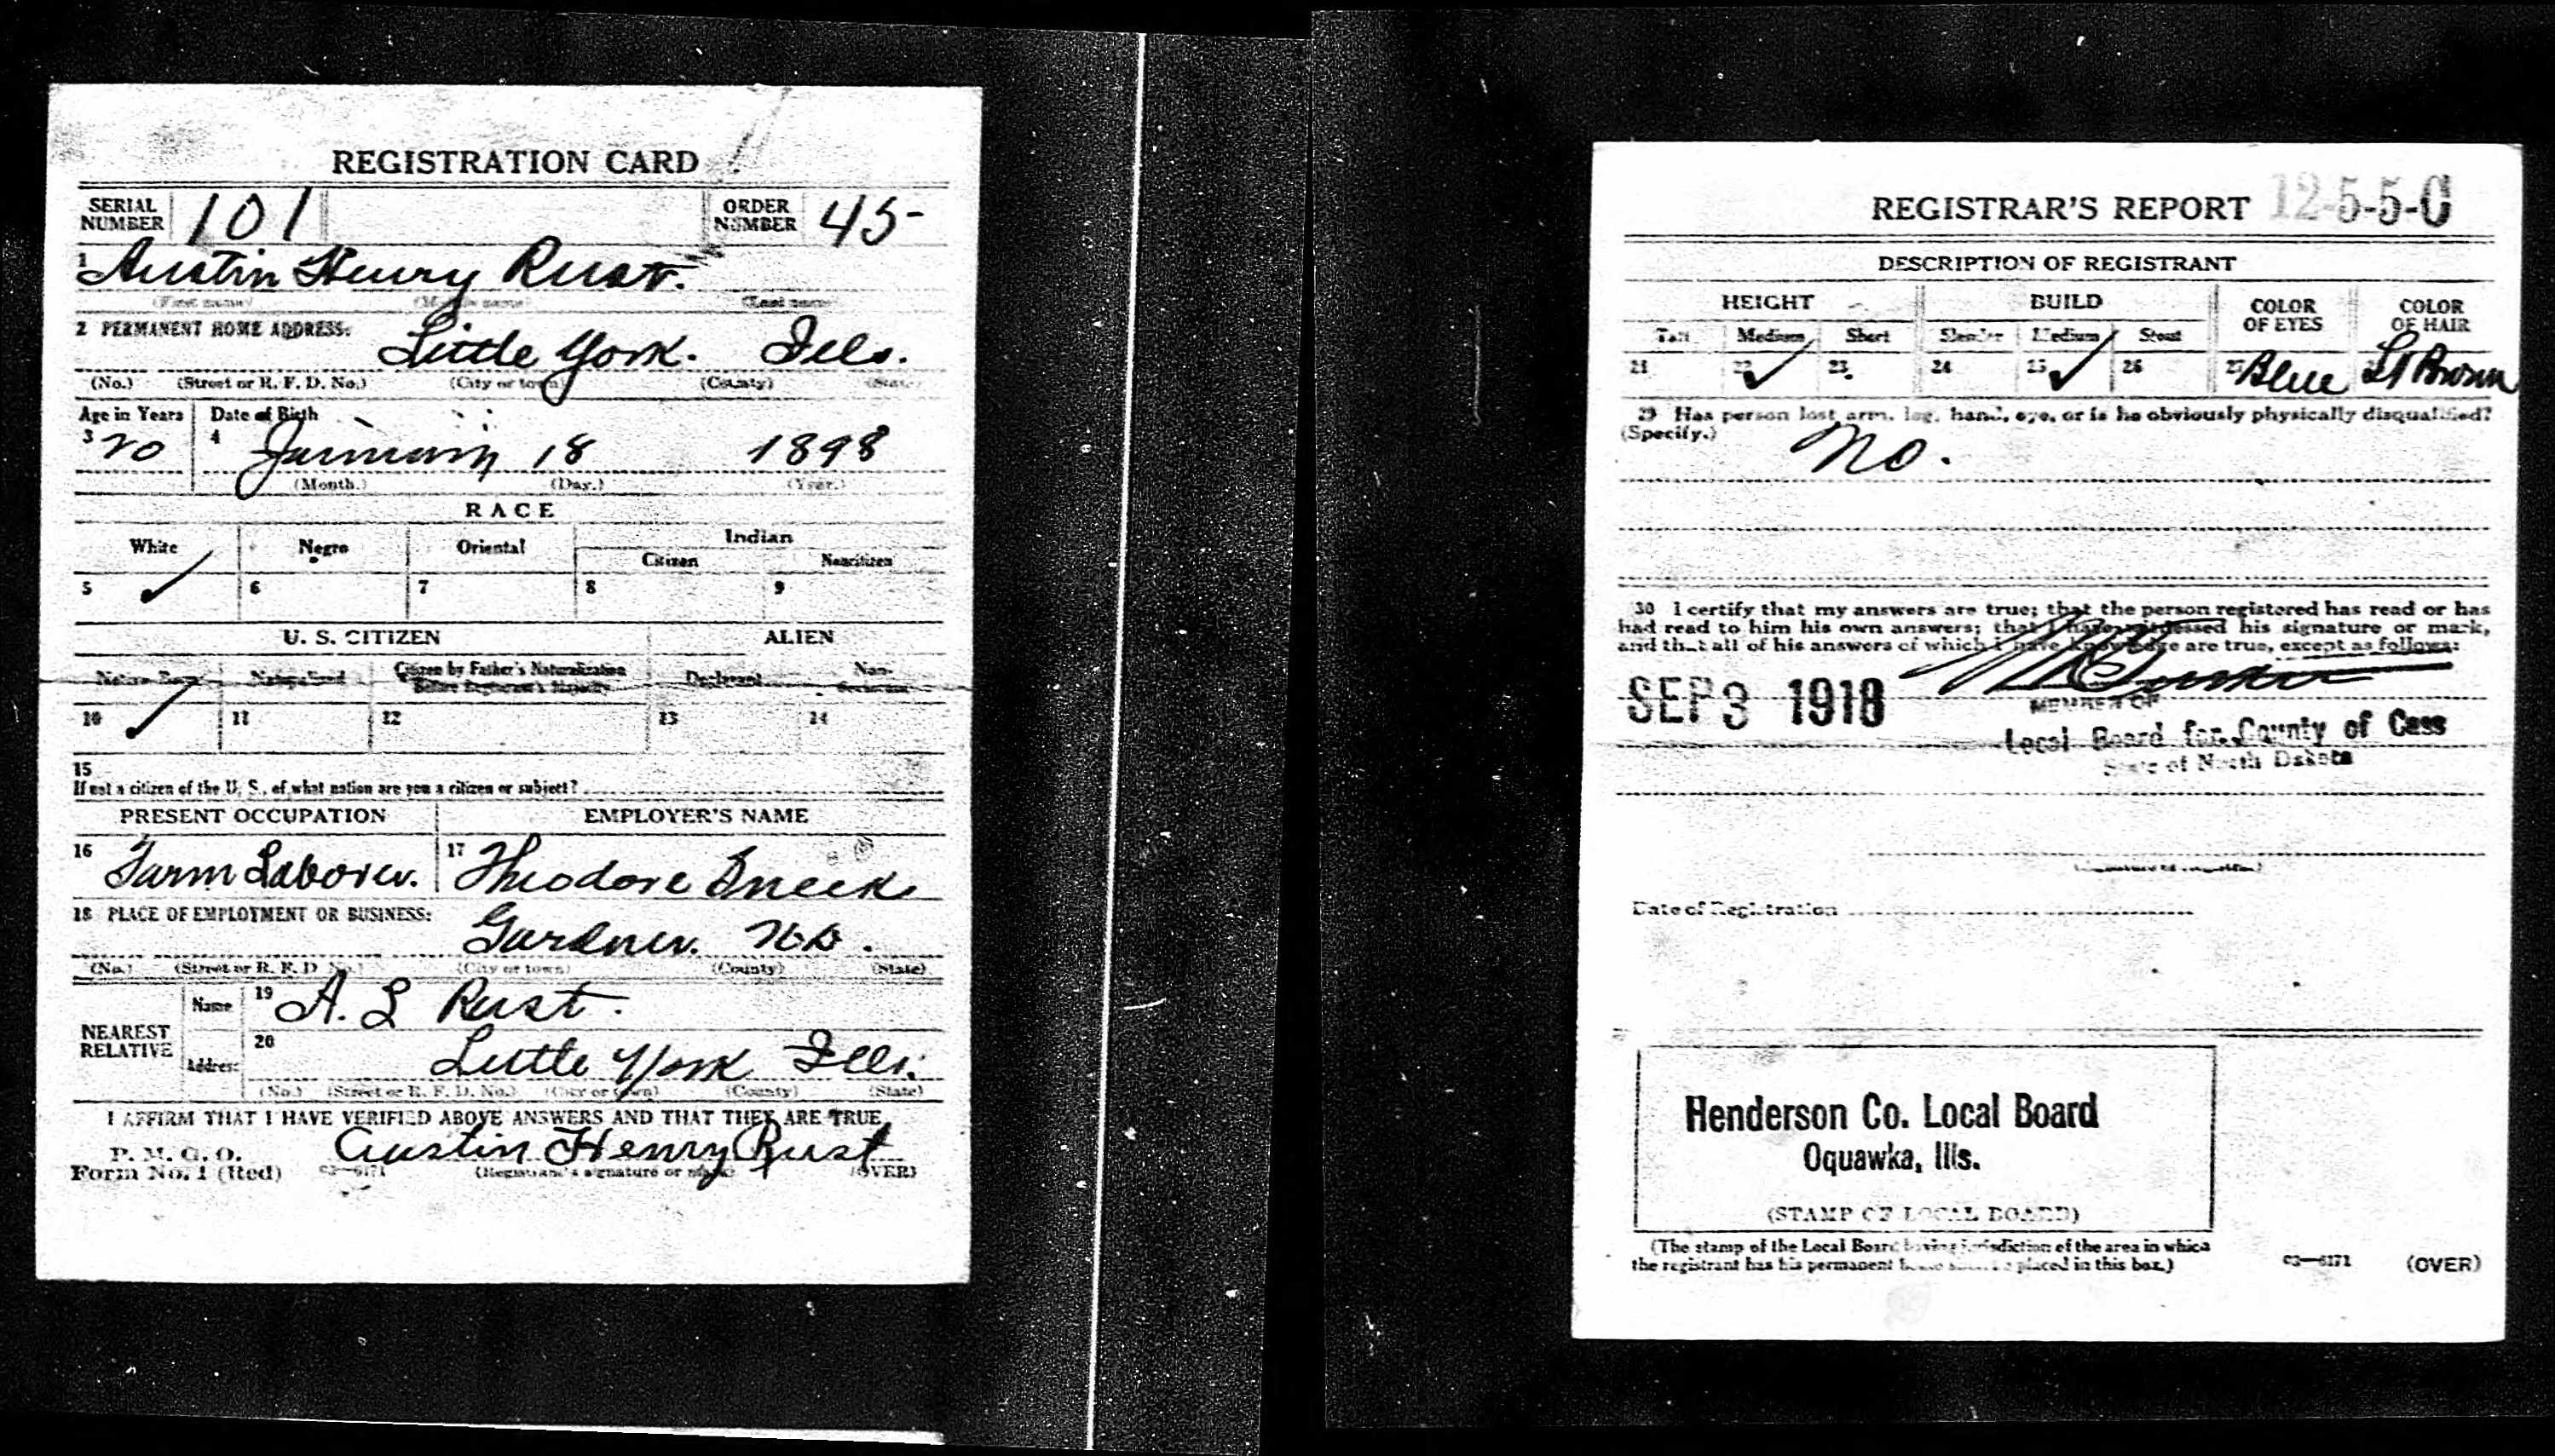 REGISTRATION CARD
SERIAL NUMBER 101 ORDER NUMBER 45-
1 Austin Henry Rust.
(First name) (Middle name) (Last name)
2 PERMANENT HOME ADDRESS:
Little York. Ills.
(No.) (Street or R. F. D. No.) (City or town) (County) (State)
Age in Years Date of Birth
3 20 4 January 18 1898
(Month.) (Day.) (Year.)
RACE
White Negro Oriental Indian
Citizen Noncitizen
5 ✓ 6 7 8 9
U. S. CITIZEN ALIEN
Native Born Naturalized Citizen by Father's Naturalization Before Registrant's Majority Declarant Non-declarant
10 ✓ 11 12 13 14
15
If not a citizen of the U. S., of what nation are you a citizen or subject?
PRESENT OCCUPATION EMPLOYER'S NAME
16 Farm Laborer. 17 Theodore
18 PLACE OF EMPLOYMENT OR BUSINESS:
Gardner. N.D.
(No.) (Street or R. F. D. No.) (City or town) (County) (State)
NEAREST RELATIVE
Name 19 A. L Rust.
Address 20 Little York Ills.
(No.) (Street or R. F. D. No.) (City or town) (County) (State)
I AFFIRM THAT I HAVE VERIFIED ABOVE ANSWERS AND THAT THEY ARE TRUE
P. M. G. O.
Form No. 1 (Red) 03—6171 Austin Henry Rust
(Registrant's signature or mark) (OVER)
REGISTRAR'S REPORT 12-5-5-C
DESCRIPTION OF REGISTRANT
HEIGHT BUILD COLOR OF EYES COLOR OF HAIR
Tall Medium Short Slender Medium Stout
21 22 ✓ 23 24 25 ✓ 26 27 Blue Lt Brown
29 Has person lost arm, leg, hand, eye, or is he obviously physically disqualified?
(Specify.) No.
30 I certify that my answers are true; that the person registered has read or has
had read to him his own answers; that I have witnessed his signature or mark,
and that all of his answers of which I have knowledge are true, except as follows:
SEP 3 1918
MEMBER OF
Local Board for County of Cass
State of North Dakota
(Signature of registrar)
Date of Registration
Henderson Co. Local Board
Oquawka, Ills.
(STAMP OF LOCAL BOARD)
(The stamp of the Local Board having jurisdiction of the area in which
the registrant has his permanent home shall be placed in this box.)
03—6171 (OVER)